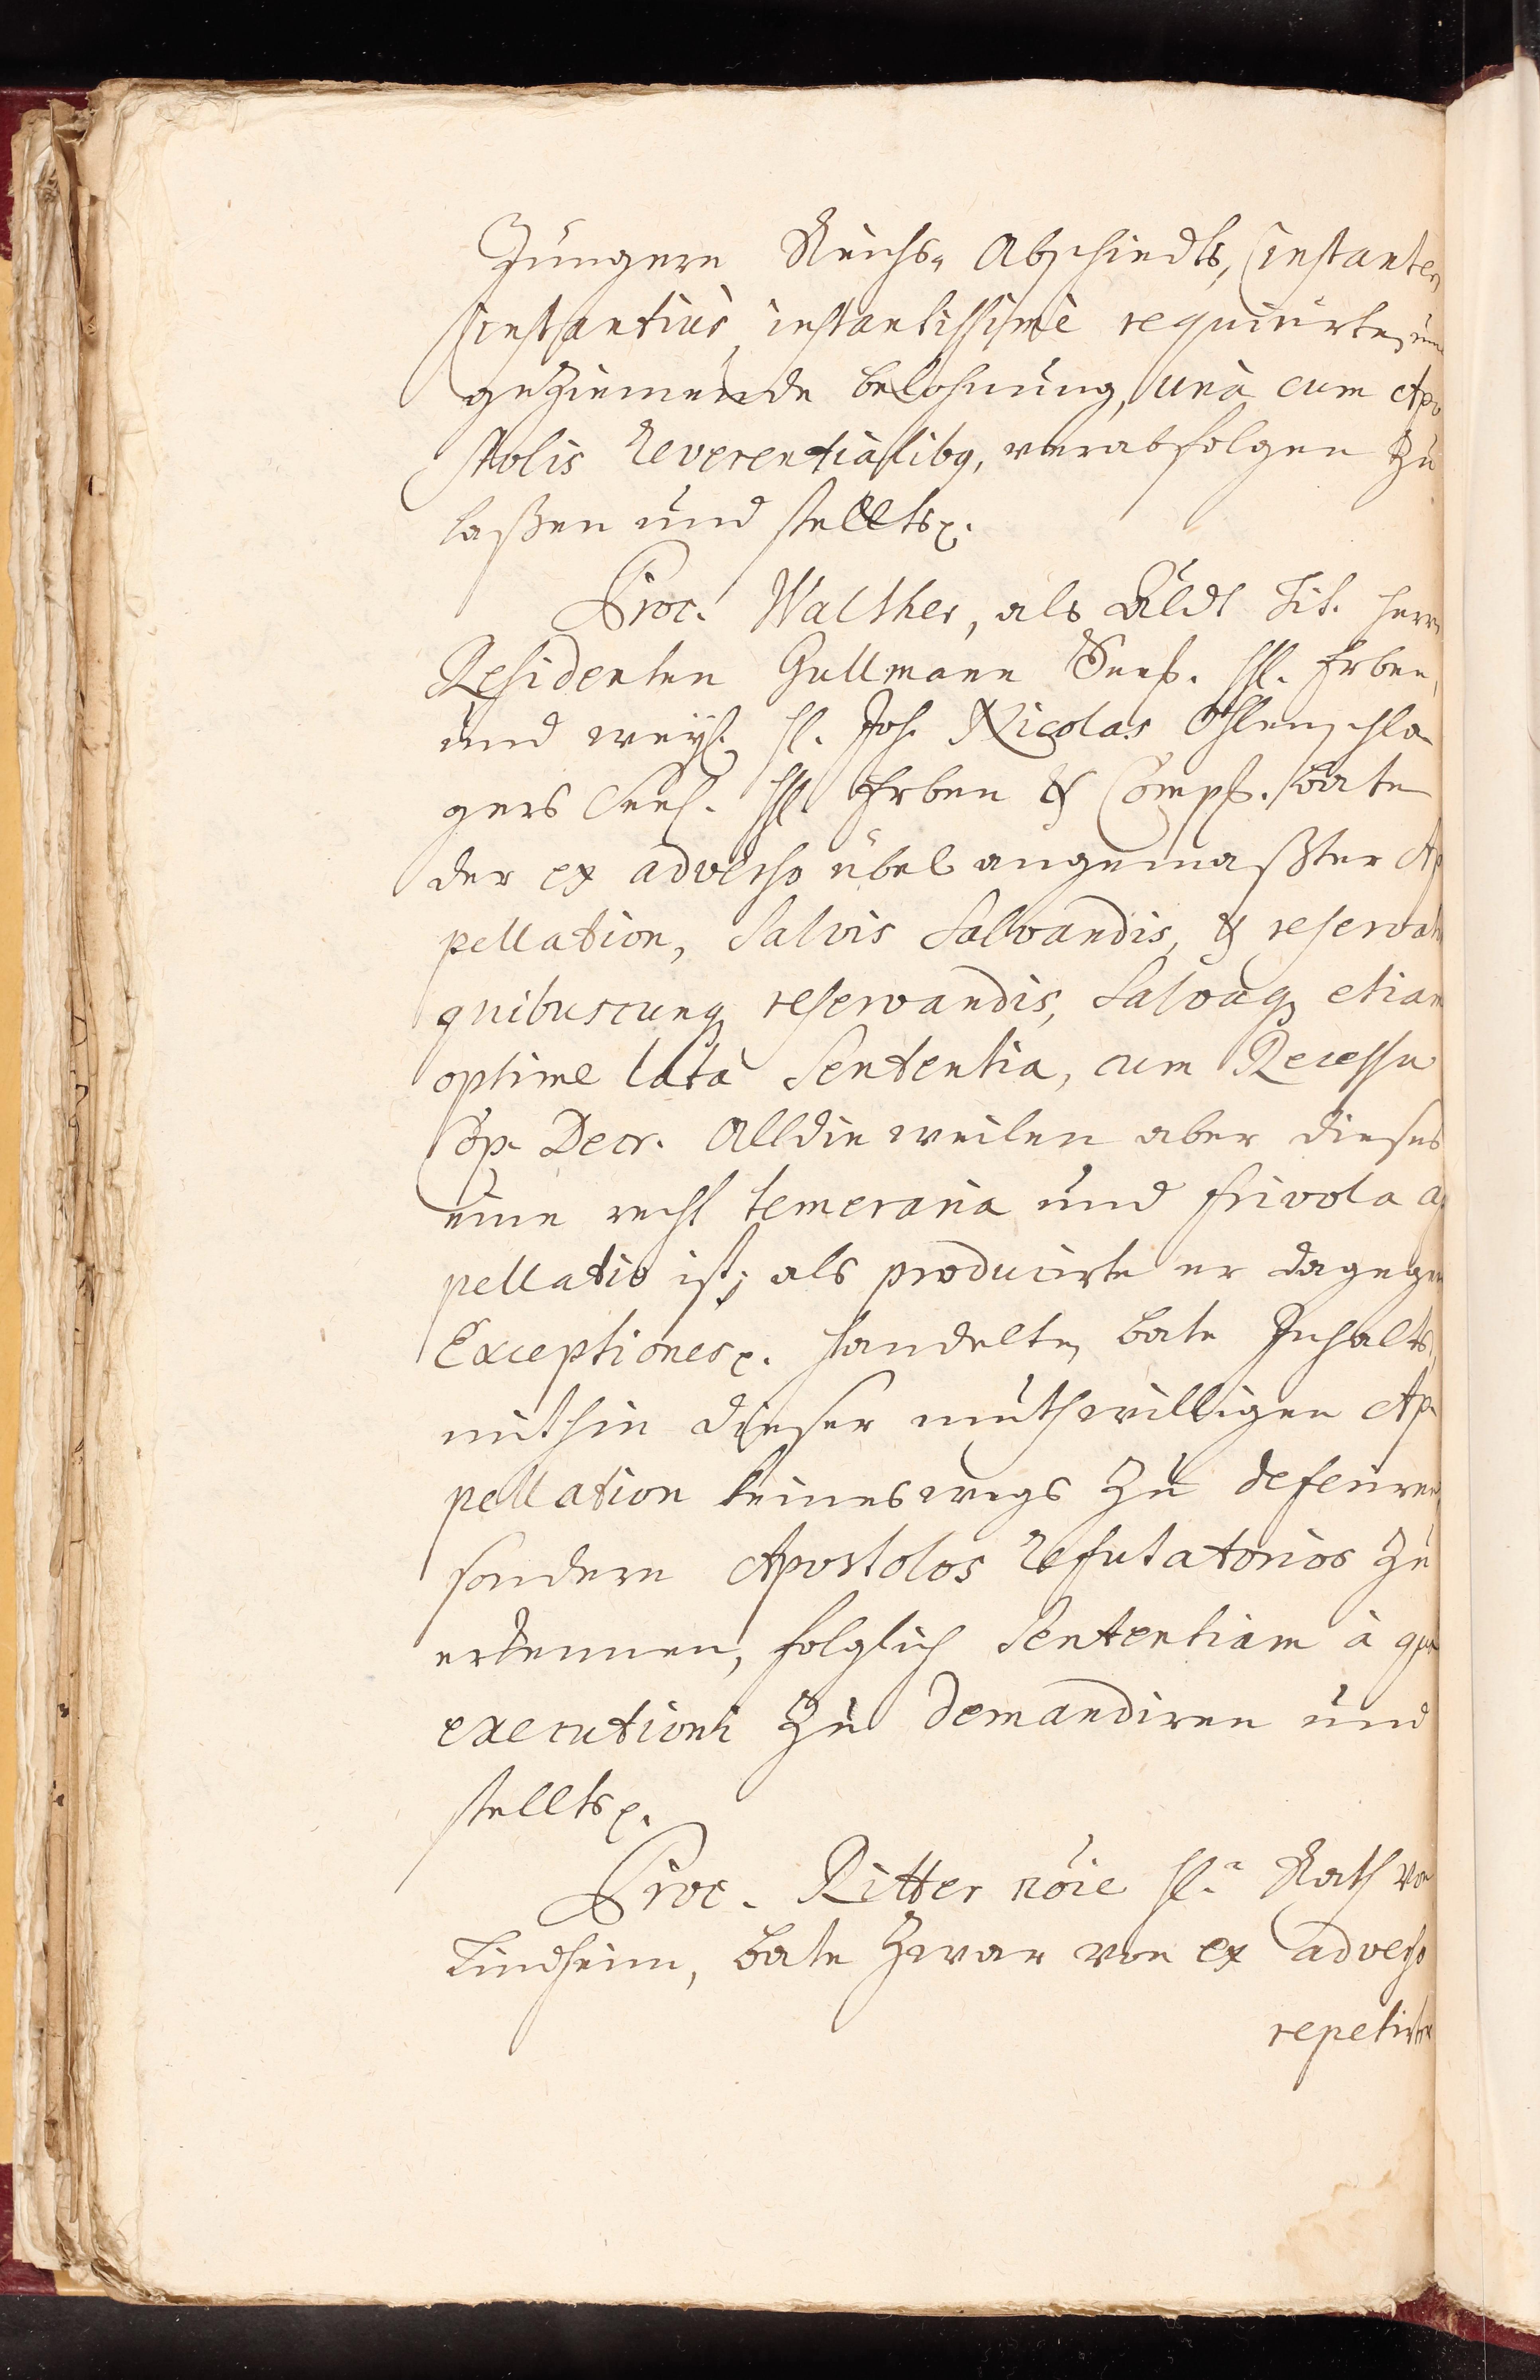 Jüngern Reichs- Abschiedts, instanter,
instantius, instantissimè requirirte, um
geziemende belohnung, unà cum Apo
stolis Reverentialibq, verabfolgen zu
laßen und stellts p.
Proc. Walther, als Aldt Tit. Herrn
Residenten Gullmann Seel. Hl. Erben,
und weyl. H. Joh. Nicolas Ohlenschla
gers Seel. Hl. Erben & Comp. bate
der ex adverso übel angemaßter Ap
pellation, Salvis Salvandis, & reservatis
quibuscunq reservandis, Salvaq etiam
optime lata Sententia, cum Recessu
Cop. Decr. Alldieweilen aber dieses
eine recht temeraria und frivola ap
pellatio ist; als producirte er dagegen
Exceptiones p. handelte, bate Inhalts,
mithin dieser muthwilligen Ap-
pellation keineswegs zu deferiren,
sondern Apostolos Refutatorios zu
erkennen, folglich Sententiam à qua
executioni zu demandiren und
stellts p.
Proc. Ritter nõie H.n Rath von
Lindheim, bate zwar von ex adverso
repetirte